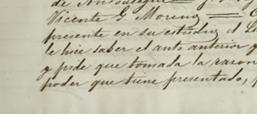 de
Vicente G. Moreno
presente en su estudio, el
le hice saber el auto anterior y
y pide que tomada la razon
poder que tiene presentado,